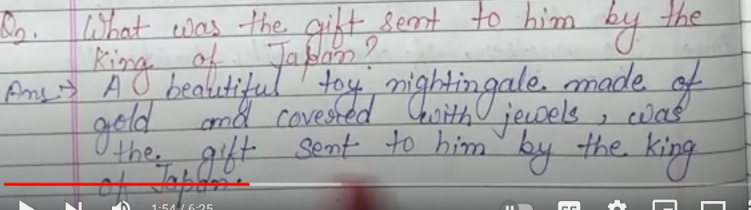 Q. What was the gift sent to him by the
King of Japan?
Ans → A beautiful toy nightingale made of
gold and covered with jewels, was
the gift sent to him by the King
of Japan.
1:54 / 6:25